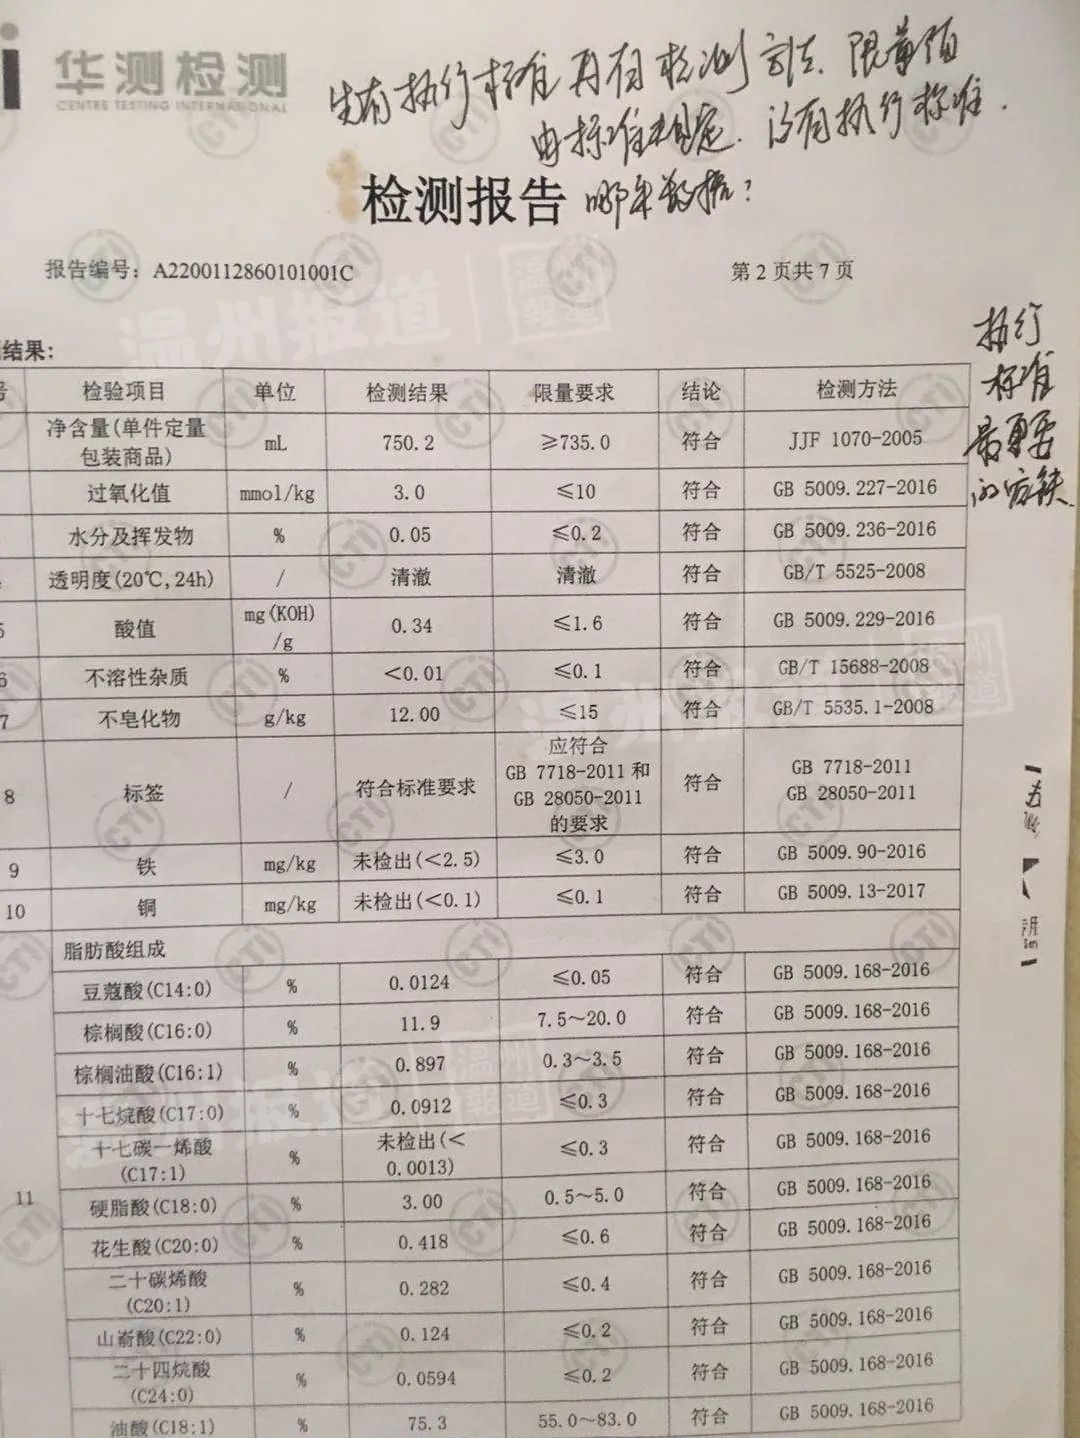 华测检测
CENTRE TESTING INTERNATIONAL
先有执行标准再有检测方法、限量值
由标准规定. 没有执行标准.
哪来数据?
检测报告
报告编号: A2200112860101001C
第 2 页共 7 页
执行
标准
最重要
的缺
结果:
号 检验项目 单位 检测结果 限量要求 结论 检测方法
净含量(单件定量包装商品) mL 750.2 ≥735.0 符合 JJF 1070-2005
过氧化值 mmol/kg 3.0 ≤10 符合 GB 5009.227-2016
水分及挥发物 % 0.05 ≤0.2 符合 GB 5009.236-2016
透明度(20℃,24h) / 清澈 清澈 符合 GB/T 5525-2008
5 酸值 mg(KOH)/g 0.34 ≤1.6 符合 GB 5009.229-2016
6 不溶性杂质 % <0.01 ≤0.1 符合 GB/T 15688-2008
7 不皂化物 g/kg 12.00 ≤15 符合 GB/T 5535.1-2008
8 标签 / 符合标准要求 应符合 GB 7718-2011 和 GB 28050-2011 的要求 符合 GB 7718-2011 GB 28050-2011
9 铁 mg/kg 未检出(<2.5) ≤3.0 符合 GB 5009.90-2016
10 铜 mg/kg 未检出(<0.1) ≤0.1 符合 GB 5009.13-2017
11 脂肪酸组成
豆蔻酸(C14:0) % 0.0124 ≤0.05 符合 GB 5009.168-2016
棕榈酸(C16:0) % 11.9 7.5～20.0 符合 GB 5009.168-2016
棕榈油酸(C16:1) % 0.897 0.3～3.5 符合 GB 5009.168-2016
十七烷酸(C17:0) % 0.0912 ≤0.3 符合 GB 5009.168-2016
十七碳一烯酸(C17:1) % 未检出(<0.0013) ≤0.3 符合 GB 5009.168-2016
硬脂酸(C18:0) % 3.00 0.5～5.0 符合 GB 5009.168-2016
花生酸(C20:0) % 0.418 ≤0.6 符合 GB 5009.168-2016
二十碳烯酸(C20:1) % 0.282 ≤0.4 符合 GB 5009.168-2016
山嵛酸(C22:0) % 0.124 ≤0.2 符合 GB 5009.168-2016
二十四烷酸(C24:0) % 0.0594 ≤0.2 符合 GB 5009.168-2016
油酸(C18:1) % 75.3 55.0～83.0 符合 GB 5009.168-2016
CTI
温州报道